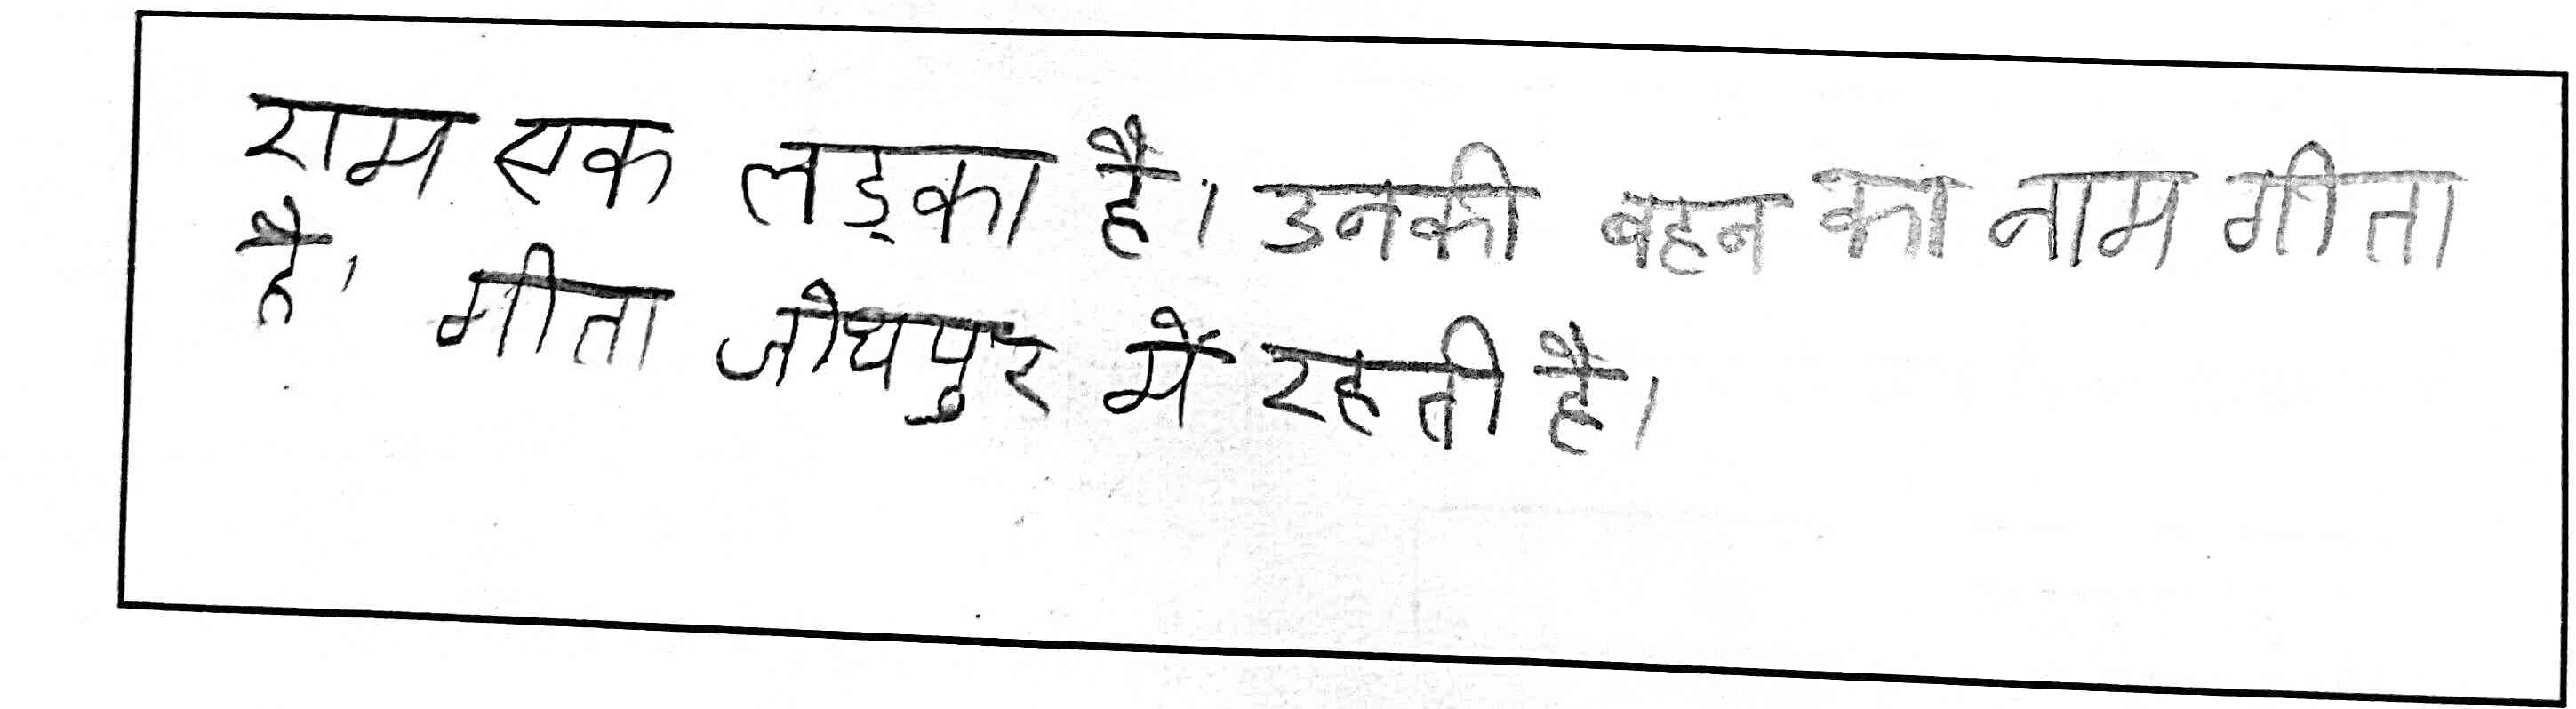 राम एक लड्का है। उनकी बहन का नाम गीता
है। गीता जोधपुर में रहती है।